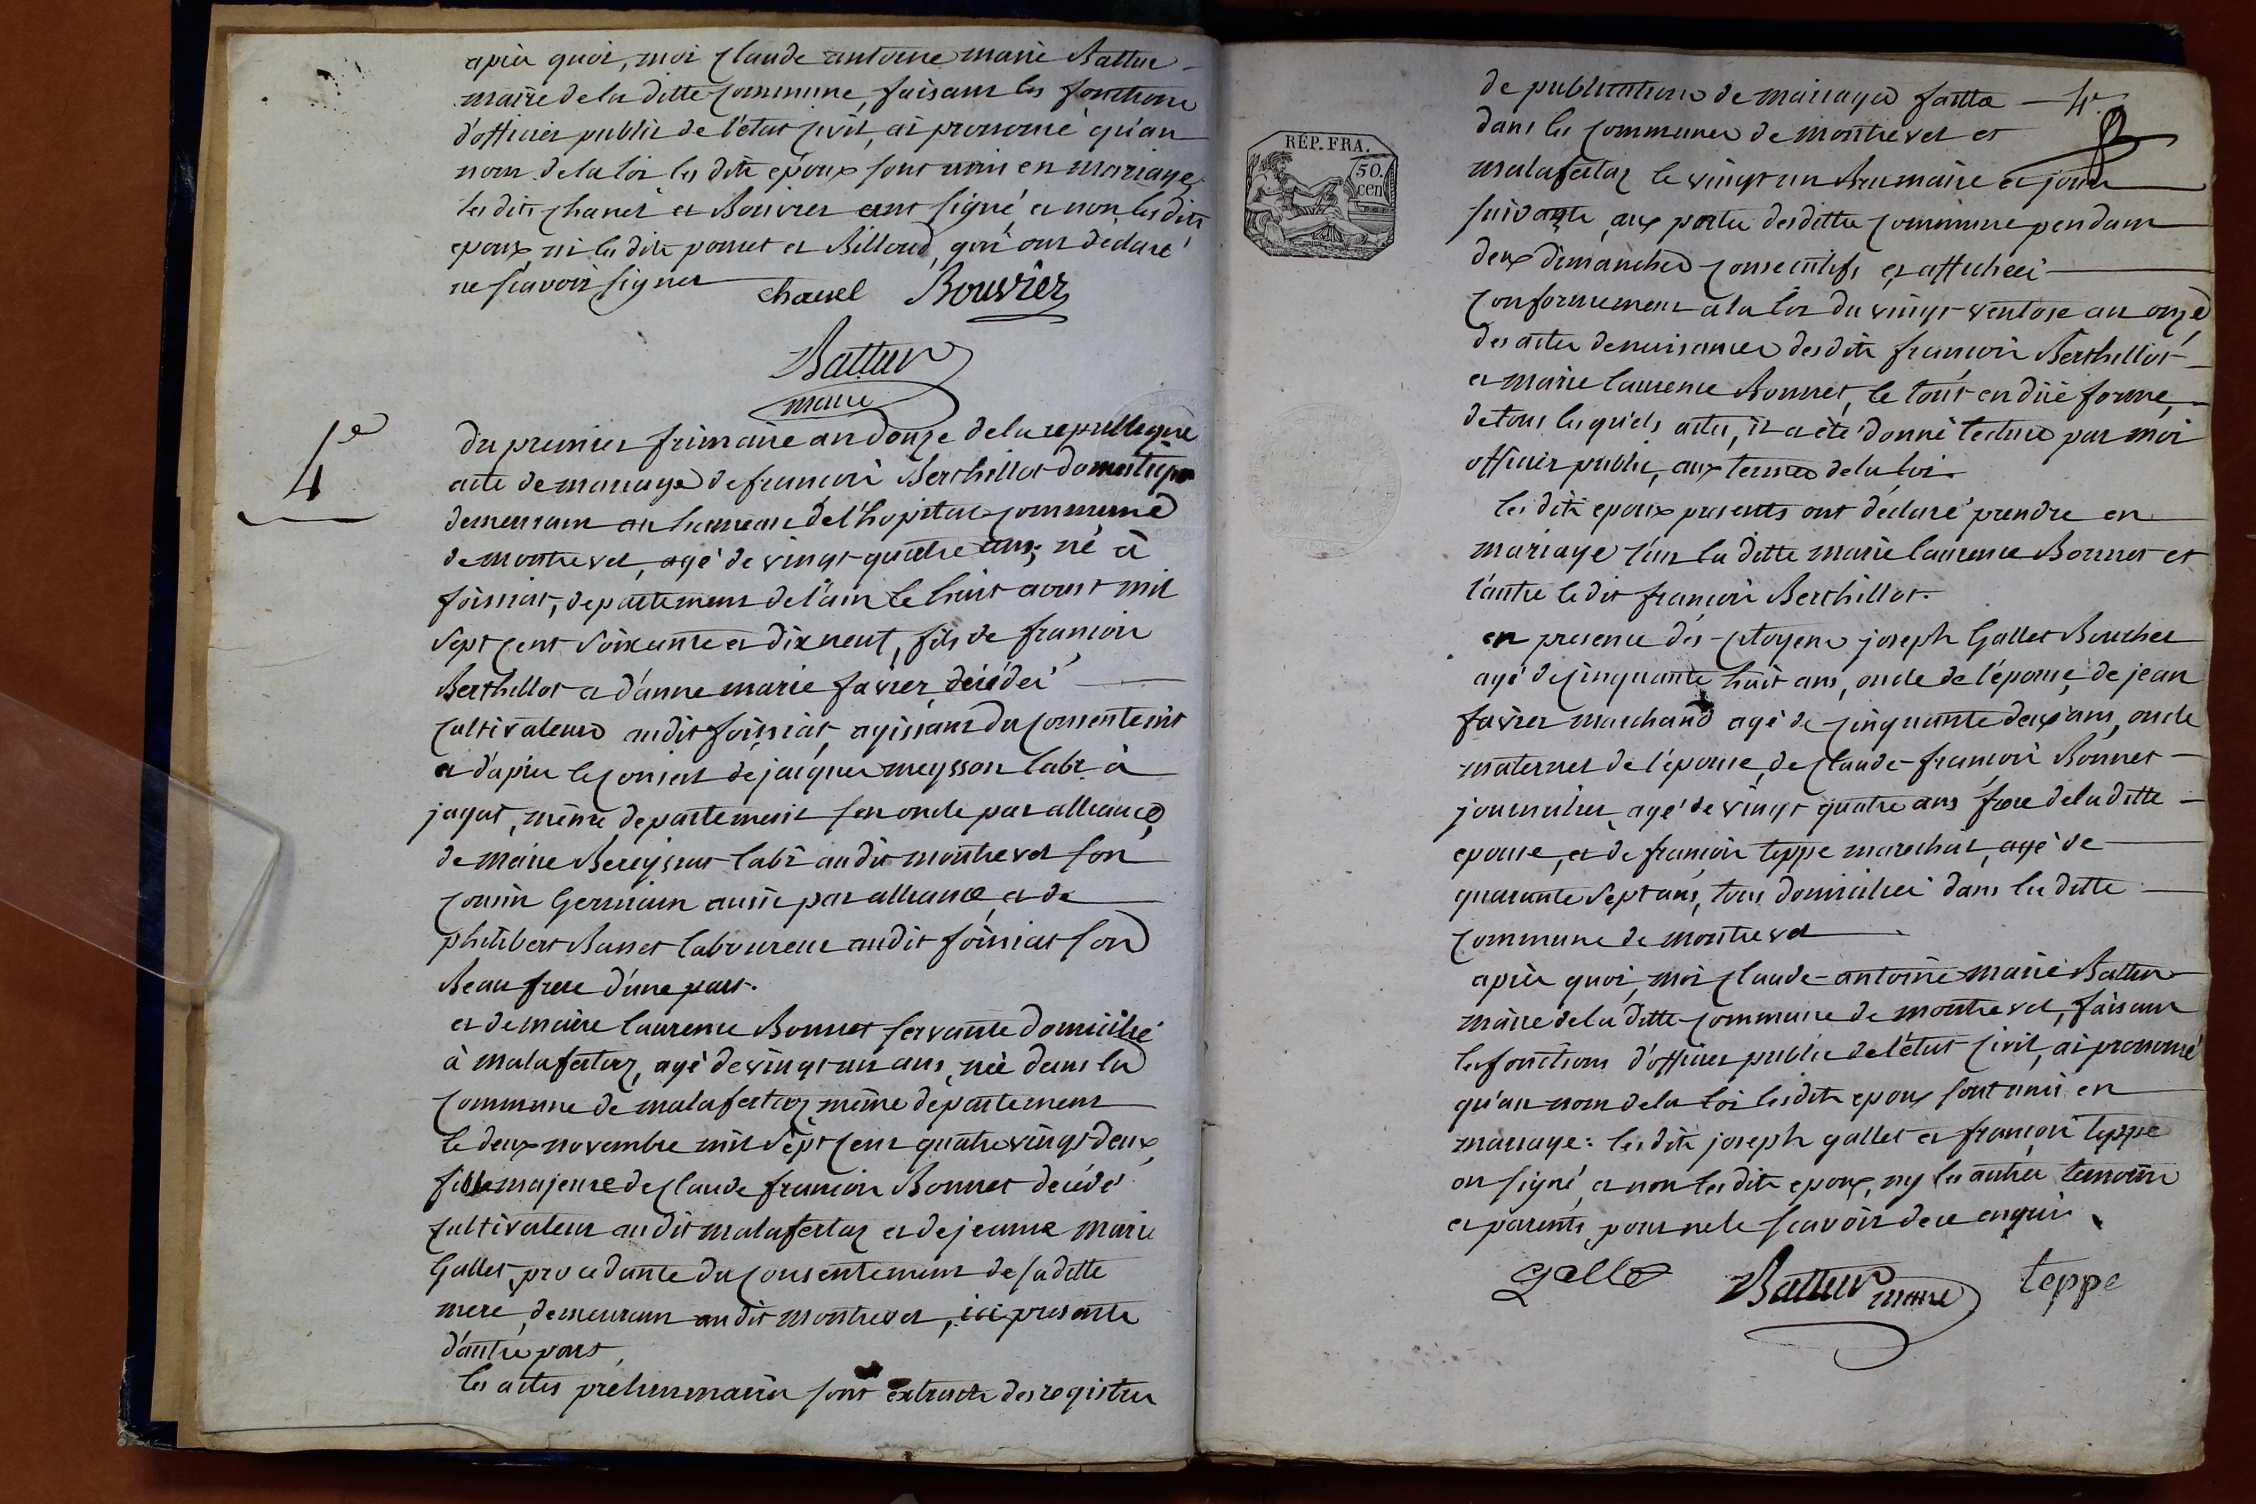 après quoi, moi Claude antoine marie Battur
maire de la ditte Commune, faisant les fonctions
d'officier public de l'état civil, ai prononcé qu'au
nom de la loi les dits époux sont unis en mariage
les dits chanel et Bouvier ont signé et non les dits
epoux, ni les dits ponset et Billoud, qui ont déclaré
ne scavoir signer chanel Bouvier
Battur
maire
4e
du premier frimaire an douze de la republique
acte de mariage de francois Berthillot domestique
demeurant au hameau de l'hopital commune
de montrevel, agé de vingt quatre ans, né à
foissiat, departement de l'ain le huit aoust mil
sept cent soixante et dix neuf, fils de francois
Berthillot et d'anne marie favier, décédés
Cultivateurs audit foissiat, agissant du consentemt
et d'après le conseil de jacques meysson labr à
jayat, même departement son oncle par alliance,
de marie Bereyssiat labr au dit montrevel son
cousin Germain aussi par alliance, et de
philibert Basset laboureur audit foissiat son
Beau frere d'une part.
et de marie laurence Bonnet servante domicilié
à malafertaz, agé de vingt un ans, née dans la
commune de malafertaz même departement
le deux novembre mil sept cent quatre vingt deux,
fille majeure de claude francois Bonnet décédé
cultivateur au dit malafertaz et de jeanne marie
Gallet, procedante du consentement de sa ditte
mere, demeurant au dit montrevel, ici presente
d'autre part,
les actes preliminaires sont extraits des registres
RÉP. FRA.
50.
cen
4e
de publications de mariages faittes
dans les communes de montrevel et
malafertaz le vingt un Brumaire et jours
suivants, aux portes desdittes communes pendant
deux dimanches consecutifs et affichées
conformement a la loi du vingt ventose an onze,
des actes de naissances desdits francois Berthillot
et marie laurence Bonnet, le tout en düe forme,
de tous lesquels actes, il a été donné lecture par moi
officier public, aux termes de la loi.
les dits epoux presents ont déclaré prendre en
mariage l'un la ditte marie laurence Bonnet et
l'autre le dit francois Berthillot.
en presence des citoyens joseph Gallet Boucher
agé de cinquante huit ans, oncle de l'épouse, de jean
favier marchand agé de cinquante deux ans, oncle
maternel de l'épouse, de claude francois Bonnet
journalier, agé de vingt quatre ans frere de la ditte
epouse, et de francois teppe marechal, agé de
quarante sept ans, tous domiciliés dans la ditte
commune de montrevel
après quoi, moi claude antoine marie Battur
maire de la ditte commune de montrevel, faisant
les fonctions d'officier public de l'état civil, ai prononcé
qu'au nom de la loi les dits epoux sont unis en
mariage: les dits joseph gallet et francois teppe
on signé, et non les dits epoux, ny les autres temoins
et parents, pour ne le scavoir de ce enquis.
gallet Battur maire teppe